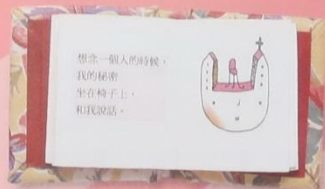 想念一個人的時候，
我的秘密
坐在椅子上，
和我說話。